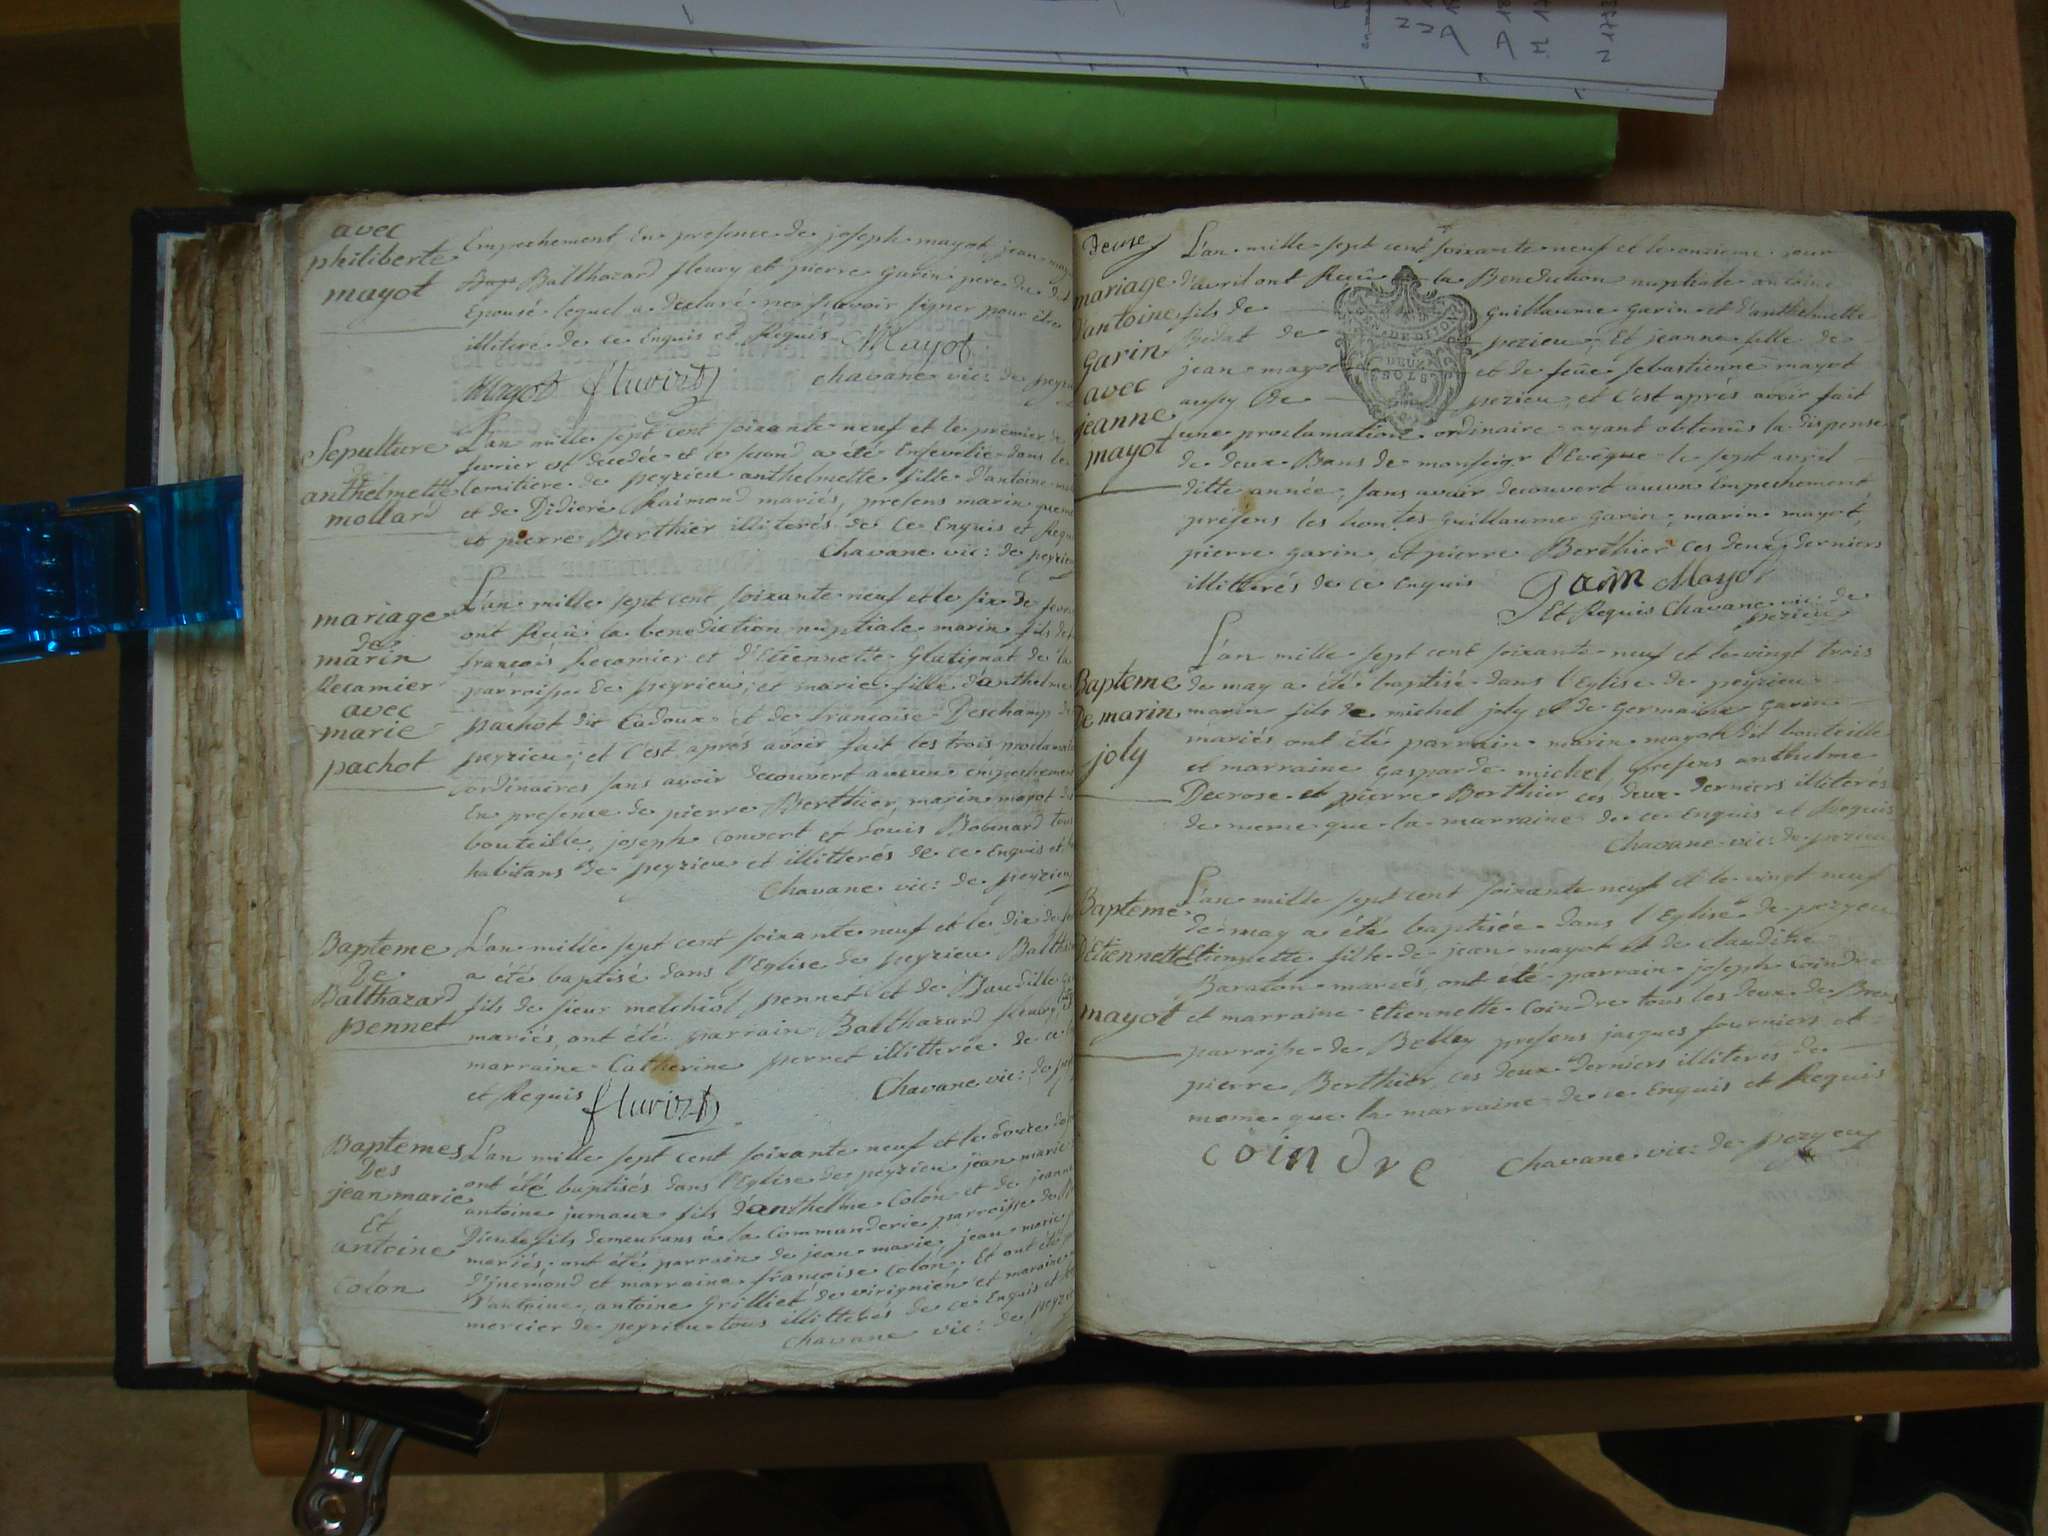 avec
philiberte
mayot
Empechement En presence de joseph mayot, jean
Balthazard fleury et pierre garin pere du dit
Epousé lequel a declaré ne sçavoir signer pour être
illiteré de ce Enquis et Requis Mayot
Mayot fluvirty chavane vic: de
Sepulture
de
anthelmette
mollard
L'an mille sept cent soixante neuf et le premier de
fevrier est decedée et le second a été Ensevelie dans le
cemitiere de peyrieu anthelmette fille d'antoine
et de Didiere Raimond mariés, presens marin
et pierre Berthier illiterés de ce Enquis et
Chavane vic: de peyrieu
mariage
de
marin
Recamier
avec
marie
pachot
L'an mille sept cent soixante neuf et le six de
ont Reçû la benediction nuptiale marin fils de
françois Recamier et d'Etiennette Glatignat de la
parroisse de peyrieu; et marie fille d'anthelme
pachot dit Cadoux et de françoise Deschamp de
peyrieu; et c'est aprés avoir fait les trois
ordinaires sans avoir decouvert aucun empechement
En presence de pierre Berthier, marin mayot
bouteille, joseph convert et Loüis Bobinard tous
habitans de peyrieu et illitterés de ce Enquis et
Chavane vic: de peyrieu
Bapteme
De
Balthazard
pennet
L'an mille sept cent soixante neuf et le dix de
a été baptisé dans l'Eglise de peyrieu
fils de sieur melchiol pennet et de Baudille
mariés, ont été parrain Balthazard fleury,
marraine Catherine perret illitterée de ce
et Requis fluvirty Chavane vic: de
Baptemes
Des
jean marie
Et
antoine
Colon
L'an mille sept cent soixante neuf et le douze
ont été baptisés dans l'Eglise de peyrieu jean marie
antoine jumaux fils d'anthelme Colon et de jeanne
Dieulefils demeurans à la Commanderie parroisse de
mariés; ont été parrain de jean marie jean marie
et marraine françoise Colon, Et ont été
d'antoine, antoine Grilliet de virignien et maraine
mercier de peyrieu tous illitterés de ce Enquis et
Chavane vic: de
deuxe
mariage
d'antoine
garin
avec
jeanne
mayot
L'an mille sept cent soixante neuf et le onzieme jour
d'avril ont Reçû la Benediction nuptiale antoine
fils de Guillaume garin et d'anthelmette
Bedat de pezieu; Et jeanne fille de
jean mayot et de feüe sebastienne mayot
aussy de pezieu, et c'est aprés avoir fait
une proclamation ordinaire ayant obtenûs la dispense
de deux Bans de monseigr l'Evêque le sept avril
ditte année, sans avoir decouvert aucun Empechement
presens les hontes Guillaume garin, marin mayot,
pierre garin et pierre Berthier ces deux derniers
illitterés de ce Enquis Garin Mayot
Et Requis Chavane vic: de
pezieu
DEUX
SOLS
Bapteme
De marin
joly
L'an mille sept cent soixante neuf et le vingt trois
de may a été baptisé dans l'Eglise de peyrieu
marin fils de michel joly et de Germaine Garin
mariés ont été parrain marin mayot dit bouteille
et marraine gasparde michel, presens anthelme
Decrose et pierre Berthier ces deux derniers illiterés
de meme que la marraine de ce Enquis et Requis
Chavane vic: de pezieu
Bapteme
D'Etiennette
mayot
L'an mille sept cent soixante neuf et le vingt neuf
de may a été baptisée dans l'Eglise de pezyeu
Etiennette fille de jean mayot et de claudine
Baraton mariés, ont été parrain joseph Coindre
et marraine Etiennette Coindre tous les deux de Brens
parroisse de Belley presens jacques fourniers et
pierre Berthier ces deux derniers illiteres de
meme que la marraine de ce Enquis et Requis
coindre Chavane vic: de pezyeu